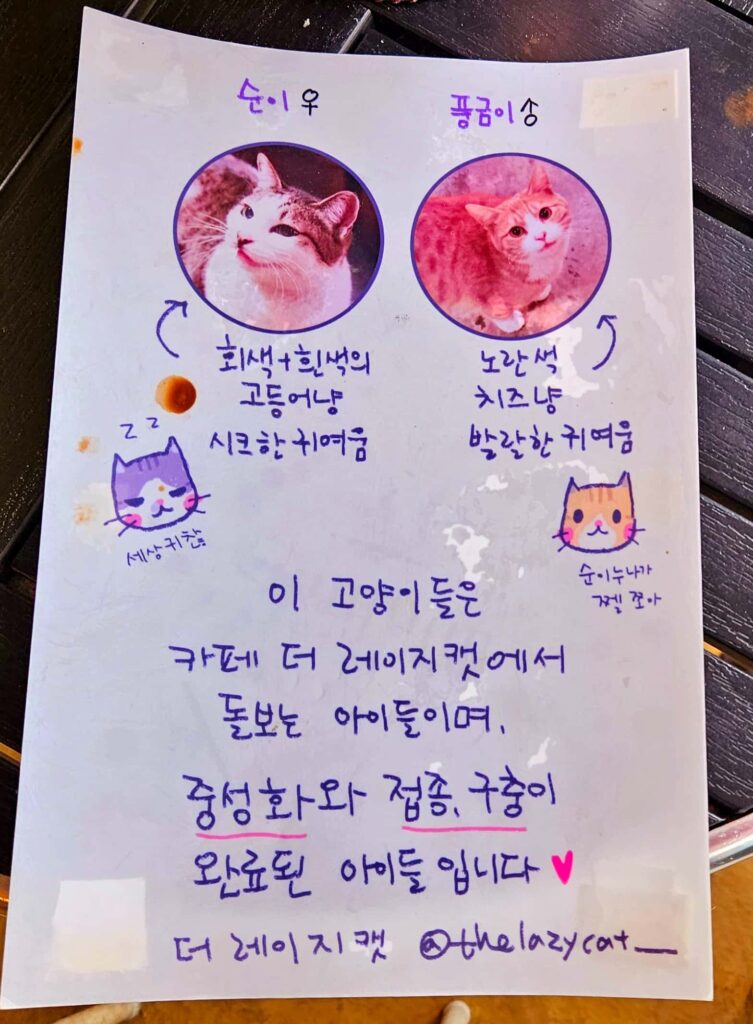 순이 ♀
풍금이 ♂
회색+흰색의
고등어냥
시크한 귀여움
노란색
치즈냥
발랄한 귀여움
z z
세상귀찮
순이누나가
쩰 쪼아
이 고양이들은
카페 더 레이지캣에서
돌보는 아이들이며,
중성화와 접종, 구충이
완료된 아이들입니다 ♥
더 레이지캣 @thelazycat__